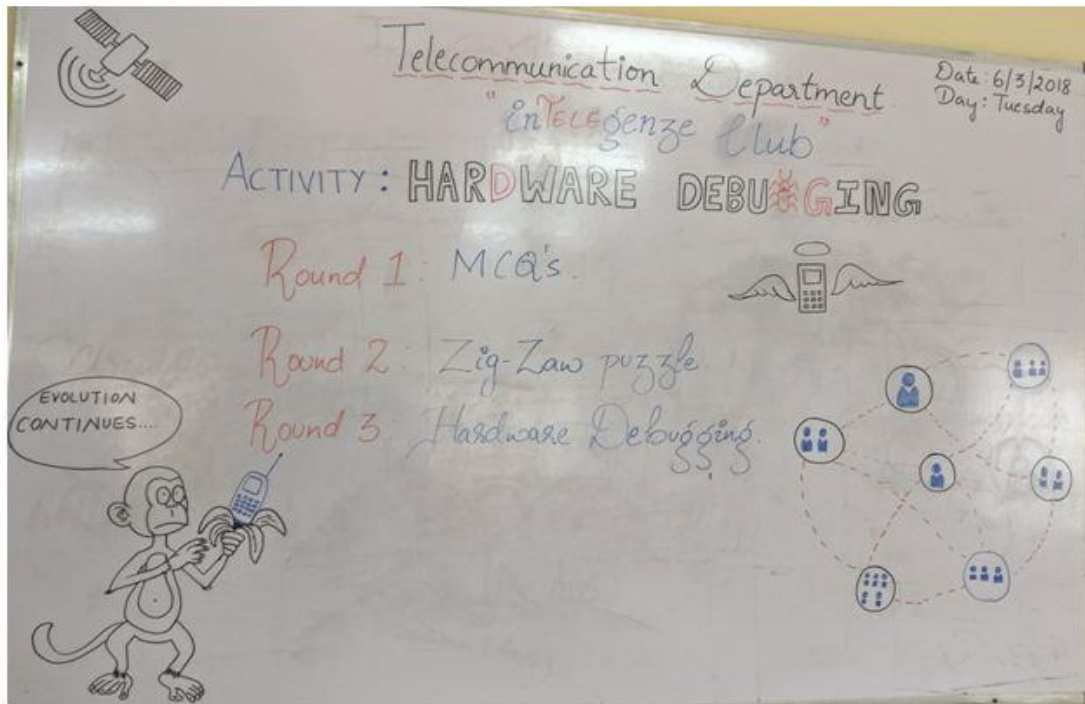 Telecommunication Department
Date: 6/3/2018
Day: Tuesday
"inTELEgenze Club"
ACTIVITY: HARDWARE DEBUGGING
Round 1: MCQ's.
Round 2: Zig-Zaw puzzle.
Round 3: Hardware Debugging.
EVOLUTION
CONTINUES....